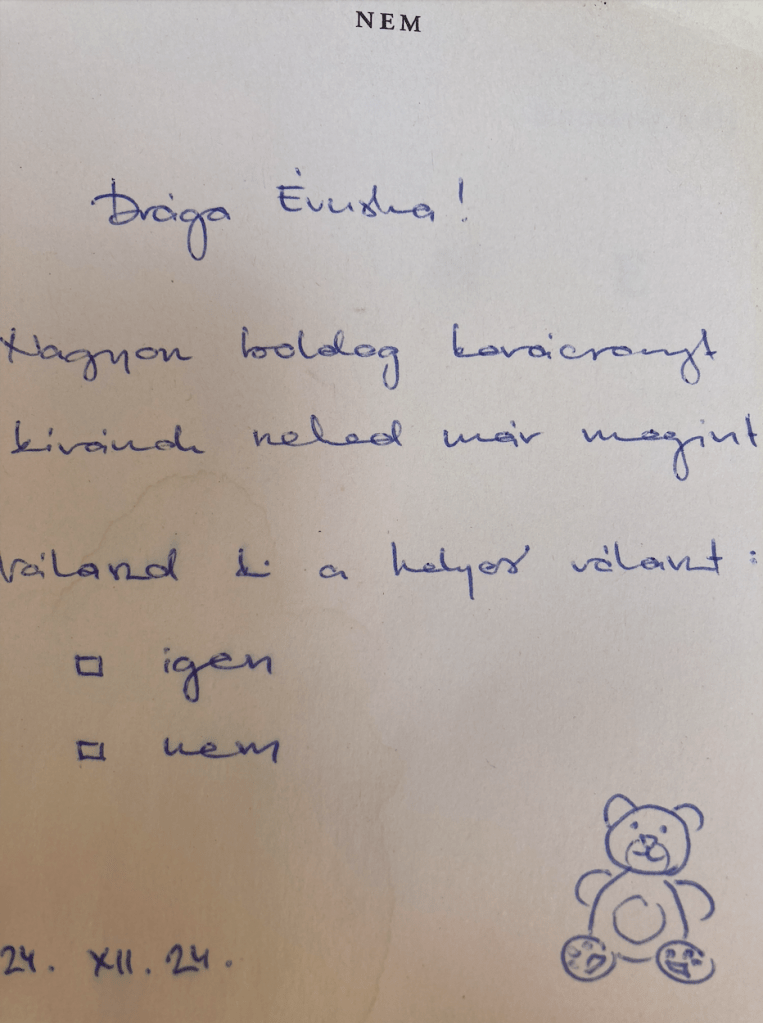 NEM
Drága Évuska!
Nagyon boldog karácsonyt
kívánok neked már megint
Válaszd ki a helyes választ:
igen
nem
24. XII. 24.